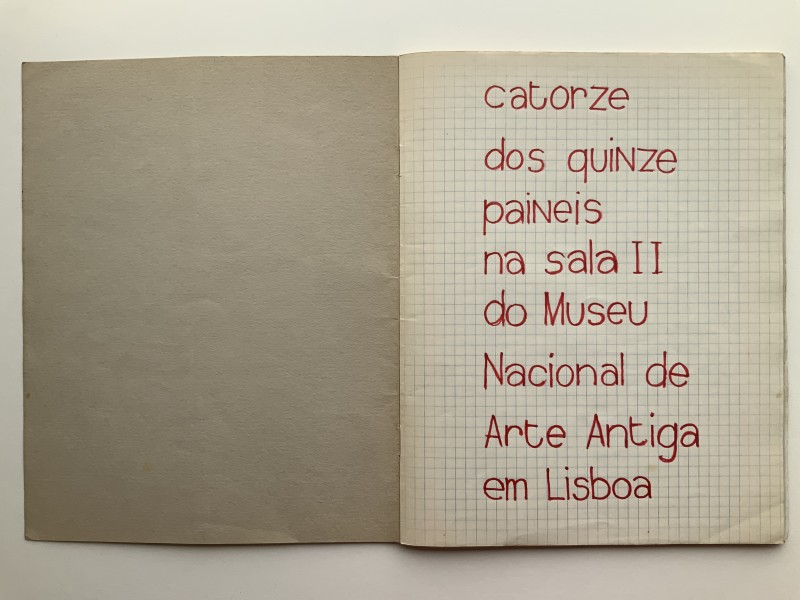 catorze
dos quinze
paineis
na sala II
do Museu
Nacional de
Arte Antiga
em Lisboa